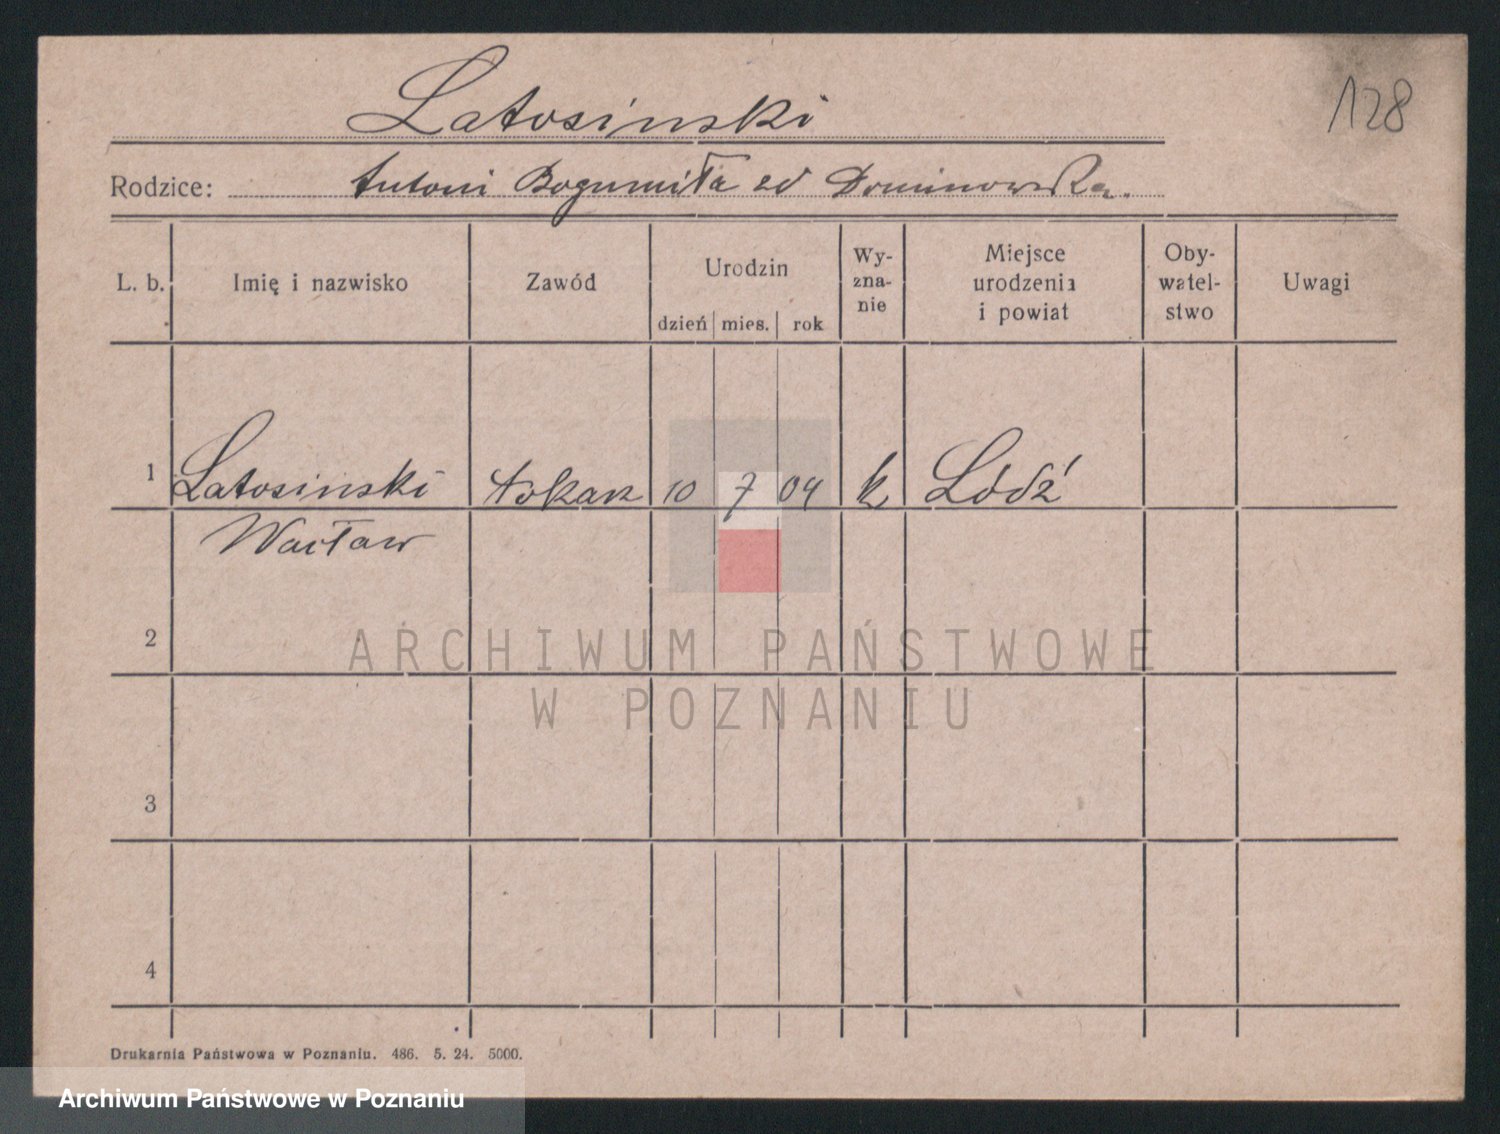 128
Latosinski
Rodzice: Antoni Bogumiła zd Dominowska.
L. b. Imię i nazwisko Zawód Urodzin Wy-zna-nie Miejsce urodzenia i powiat Oby-watel-stwo Uwagi
dzień mies. rok
1 Latosinski tokarz 10 7 04 k Łódź
Wacław
2
ARCHIWUM PAŃSTWOWE
W POZNANIU
3
4
Drukarnia Państwowa w Poznaniu. 486. 5. 24. 5000.
Archiwum Państwowe w Poznaniu